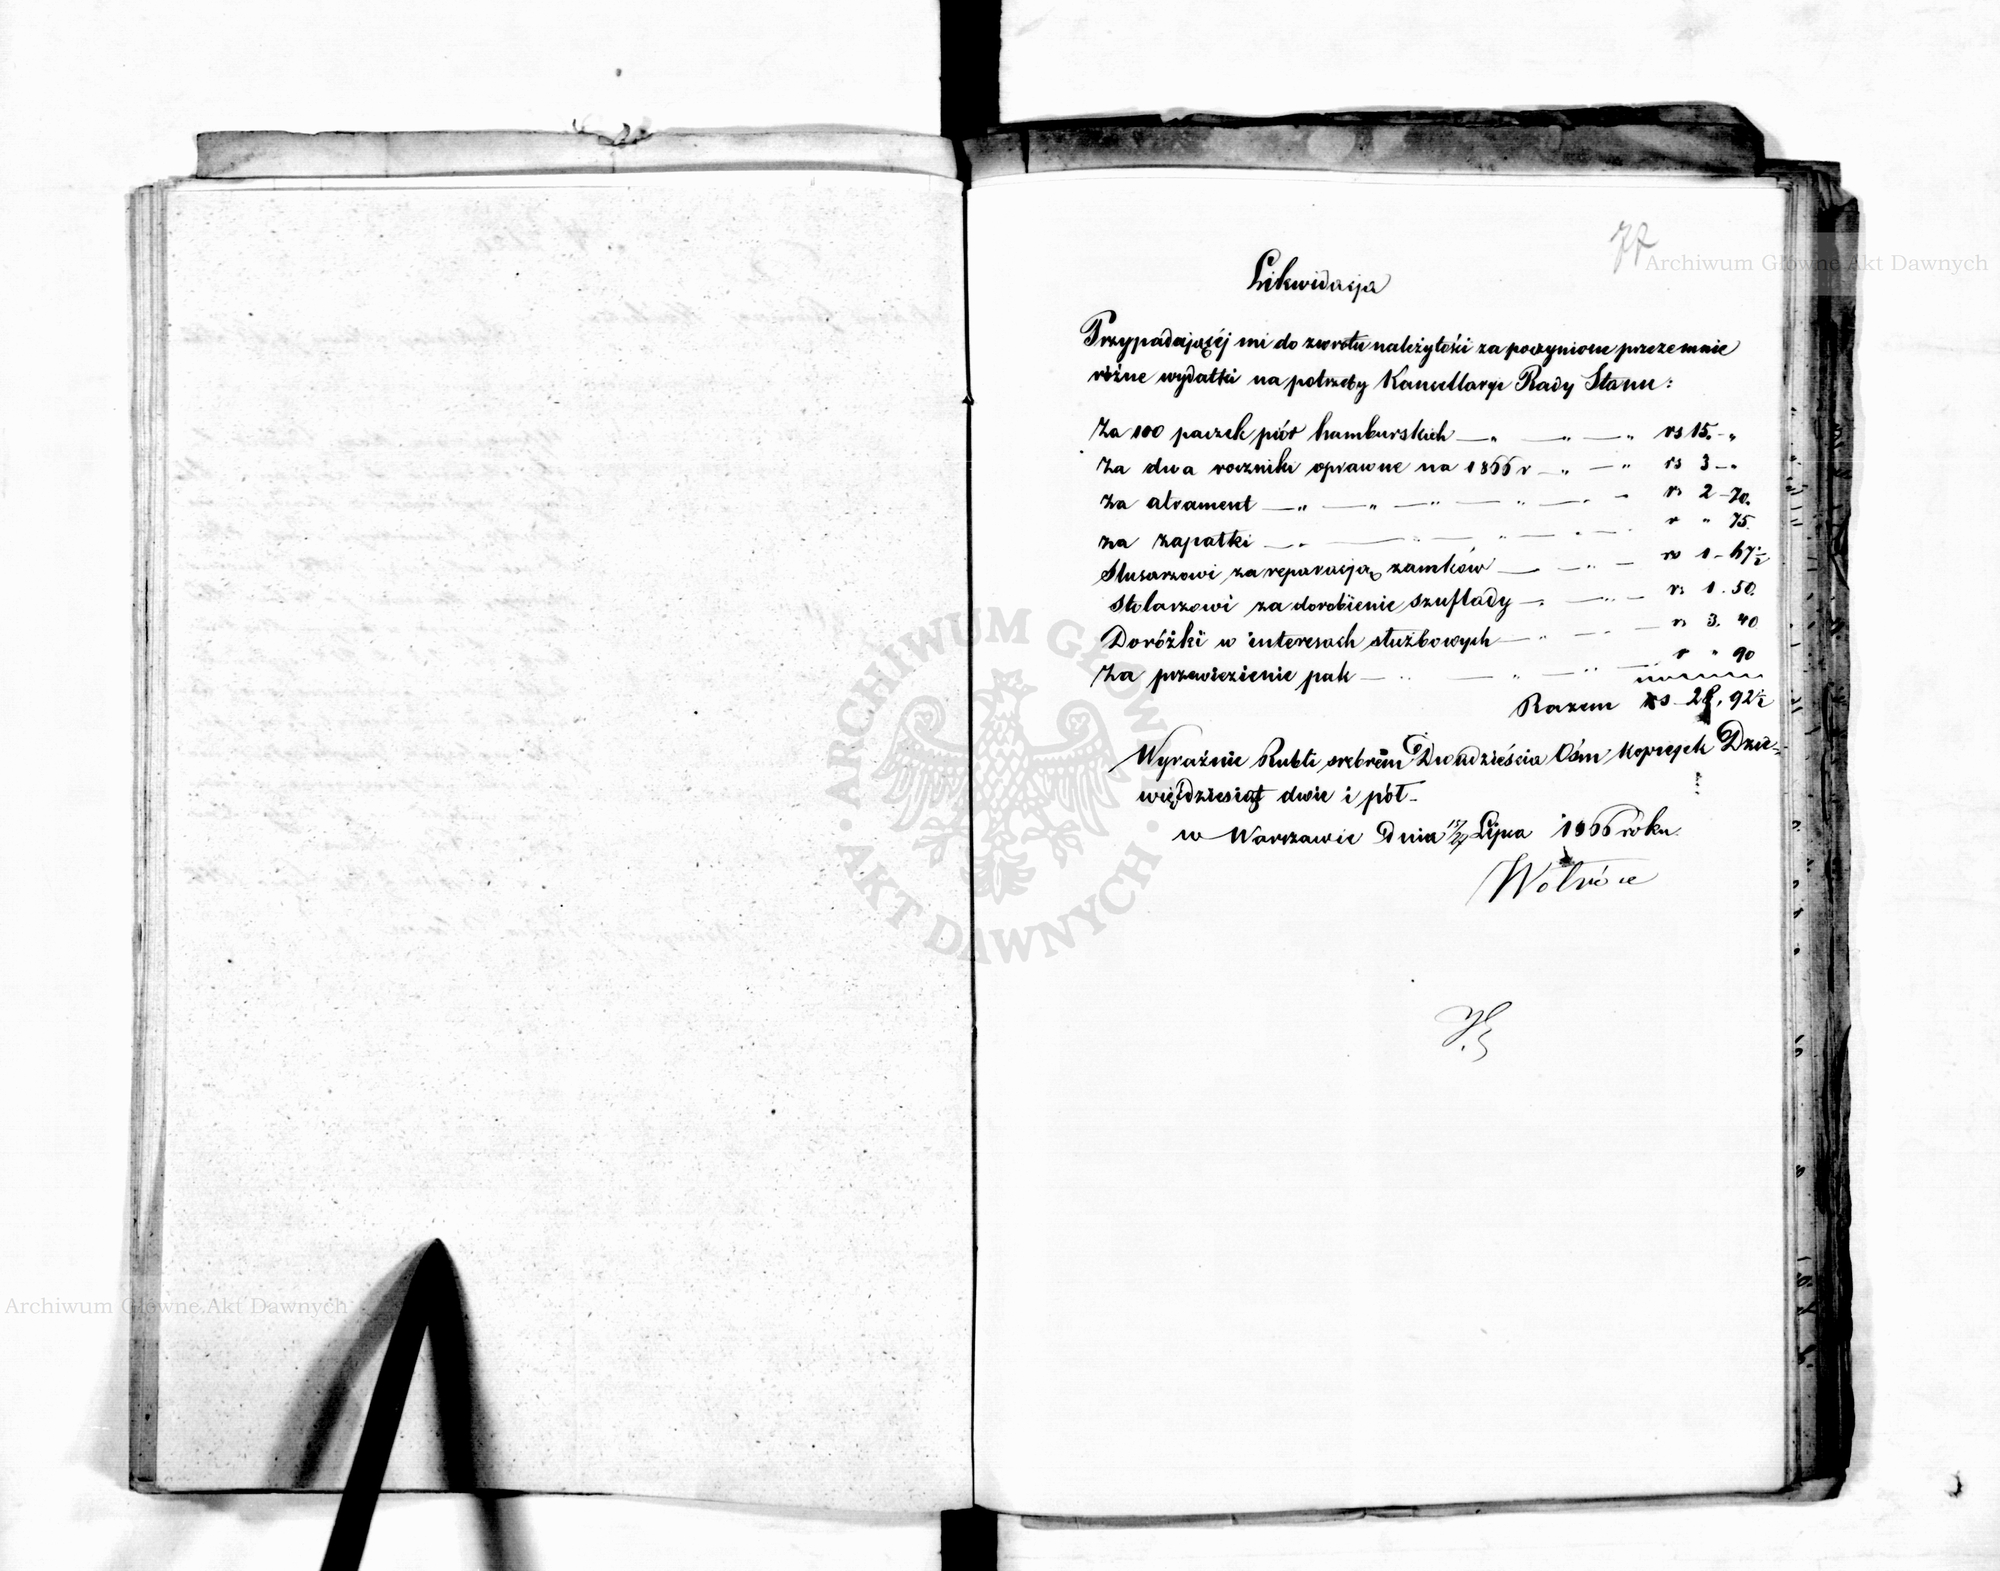 77
Likwidacja
Przypadającéj mi do zwrotu należytości za poczynione przezemnie
różne wydatki na potrzeby Kancellaryi Rady Stanu:
Za 100 paczek piór hamburskich — „ — „ — „ rs 15. - „
Za dwa roczniki oprawne na 1866 r — „ — „ rs 3 - „
Za atrament — „ — „ — „ — „ — „ - rs 2 - 70.
za zapałki — „ — „ — „ — „ - r „ 75
Slusarzowi za reparacją zamków — — „ — rs 1 - 67½
Stolarzowi za dorobienie szuflady — „ — „ — rs 1. 50.
Doróżki w interesach służbowych — „ — „ — rs 3. 40
Za przewiezienie pak — „ — „ — „ — r „ 90
Razem rs 28, 92½
Wyraźnie Rubli srebrem Dwadzieścia Ośm kopiejek Dzie-
więćdziesiąt dwie i pół -
w Warszawie Dnia 15/27 Lipca 1866 roku.
Archiwum Główne Akt Dawnych
Archiwum Główne Akt Dawnych
ARCHIWUM GŁÓWNE · AKT DAWNYCH ·